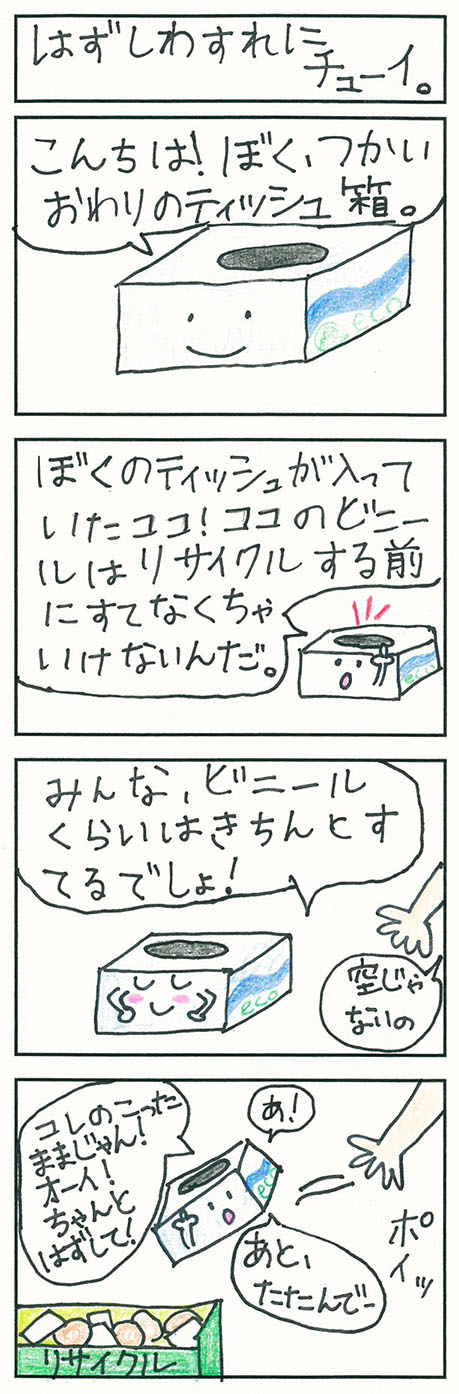 はずしわすれに
チューイ。
こんちは！ぼく、つかい
おわりのティッシュ箱。
eco
ぼくのティッシュが入って
いたココ！ココのビニー
ルはリサイクルする前
にすてなくちゃ
いけないんだ。
eco
みんな、ビニール
くらいはきちんとす
てるでしょ！
eco
空じゃ
ないの
あ！
コレのこった
ままじゃん！
オーイ！
ちゃんと
はずして！
eco
あと、
たたんでー
ポイッ
リサイクル